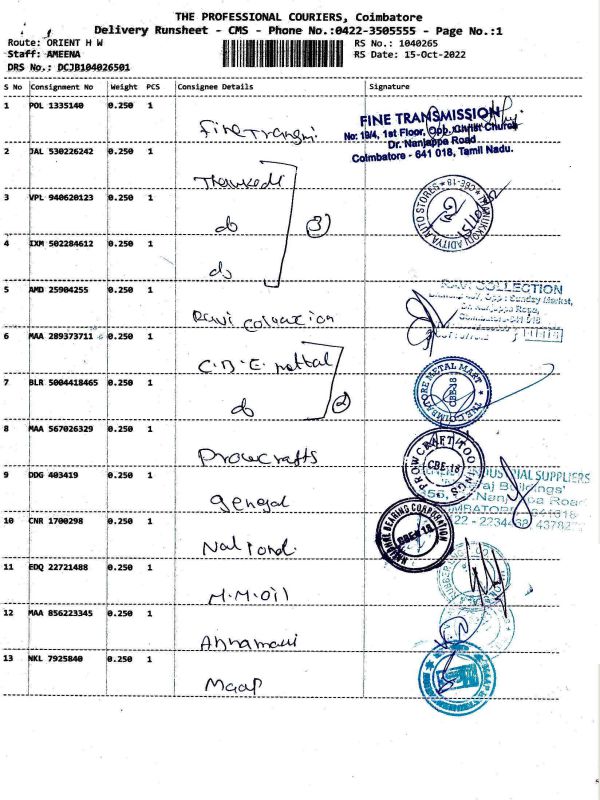 THE PROFESSIONAL COURIERS, Coimbatore
Delivery Runsheet - CMS - Phone No.:0422-3505555 - Page No.:1
Route: ORIENT H W
RS No.: 1040265
Staff: AMEENA
RS Date: 15-Oct-2022
DRS No.: DCJB104026501
S No Consignment No Weight PCS Consignee Details Signature
1 POL 1335140 0.250 1
Fine Transmi.
FINE TRANSMISSION
No: 19/4, 1st Floor, Opp. Christ Church
Dr. Nanjappa Road
Coimbatore - 641 018, Tamil Nadu.
2 JAL 530226242 0.250 1
3 VPL 940620123 0.250 1
do
(3)
ADITYA AUTO STORES * CBE-18 *
4 IXM 502284612 0.250 1
do
5 AMD 25904255 0.250 1
Ravi Collection
RAVI COLLECTION
6 MAA 289373711 0.250 1
C.B.E. Mettal
7 BLR 5004418465 0.250 1
do
(2)
* THE COIMBATORE METAL MART *
CBE-18
8 MAA 567026329 0.250 1
Prowcrafts
PROWCRAFT TOOLINGS
CBE-18
9 DDG 403419 0.250 1
General
INDUSTRIAL SUPPLIERS
Buildings'
10 CNR 1700298 0.250 1
National.
NATIONAL BEARING CORPORATION
CBE 18
11 EDQ 22721488 0.250 1
M.M.Oil
12 MAA 856223345 0.250 1
Annamani
13 NKL 7925840 0.250 1
Maap